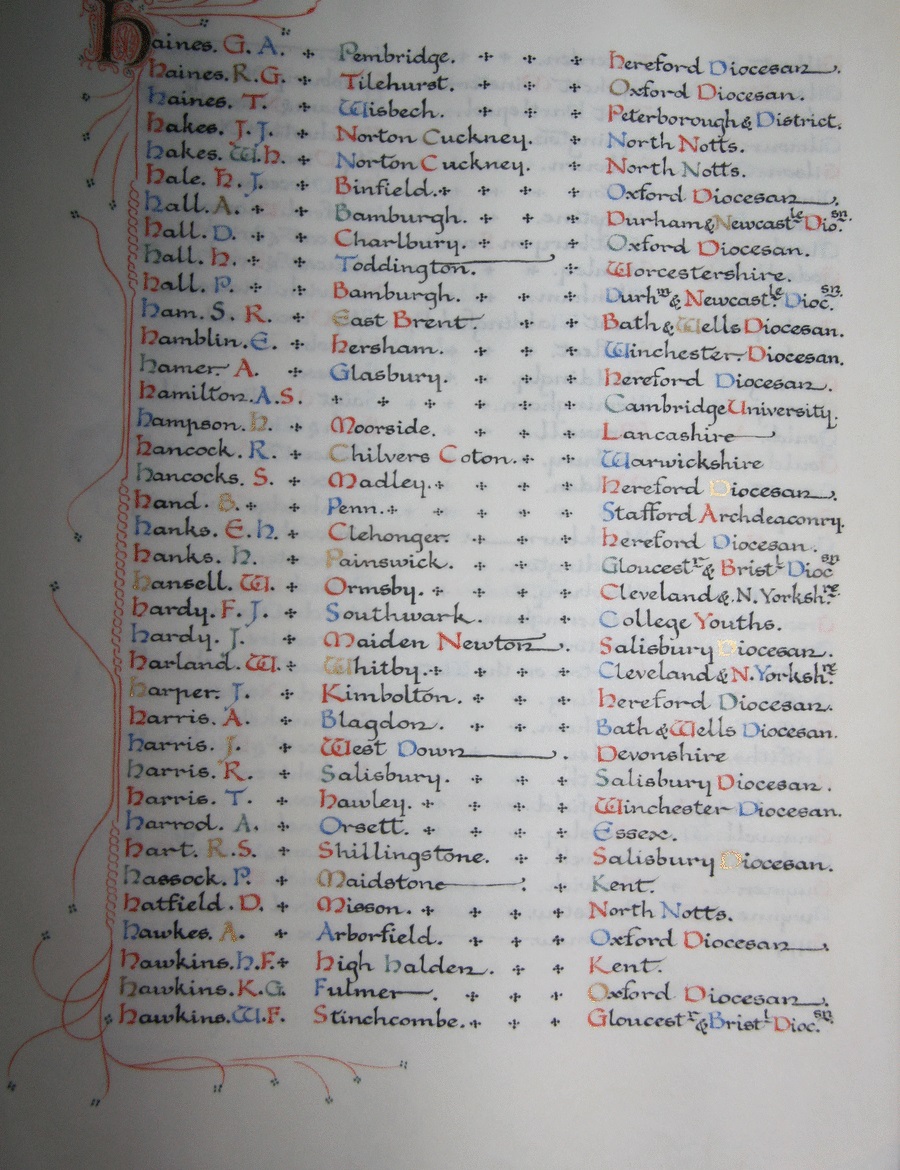 Haines. G. A. Pembridge. Hereford Diocesan.
Haines. R. G. Tilehurst. Oxford Diocesan.
Haines. T. Wisbech. Peterborough & District.
Hakes. J. J. Norton Cuckney. North Notts.
Hakes. W. H. Norton Cuckney. North Notts.
Hale. H. J. Binfield. Oxford Diocesan.
Hall. A. Bamburgh. Durham & Newcastle Dio.sn.
Hall. D. Charlbury. Oxford Diocesan.
Hall. H. Toddington. Worcestershire.
Hall. P. Bamburgh. Durhm & Newcast.le Dioc.sn.
Ham. S. R. East Brent. Bath & Wells Diocesan.
Hamblin. E. Hersham. Winchester Diocesan.
Hamer. A. Glasbury. Hereford Diocesan.
Hamilton. A. S. Cambridge University.
Hampson. H. Moorside. Lancashire
Hancock. R. Chilvers Coton. Warwickshire
Hancocks. S. Madley. Hereford Diocesan.
Hand. B. Penn. Stafford Archdeaconry.
Hanks. E. H. Clehonger. Hereford Diocesan.
Hanks. H. Painswick. Gloucestr. & Bristl Diocsn
Hansell. W. Ormsby. Cleveland & N. Yorksh.re
Hardy. F. J. Southwark. College Youths.
Hardy. J. Maiden Newton. Salisbury Diocesan.
Harland. W. Whitby. Cleveland & N. Yorksh.re
Harper. J. Kimbolton. Hereford Diocesan.
Harris. A. Blagdon. Bath & Wells Diocesan.
Harris. J. West Down. Devonshire
Harris. R. Salisbury. Salisbury Diocesan.
Harris. T. Hawley. Winchester Diocesan.
Harrod. A. Orsett. Essex.
Hart. R. S. Shillingstone. Salisbury Diocesan.
Hassock. P. Maidstone. Kent.
Hatfield. D. Misson. North Notts.
Hawkes. A. Arborfield. Oxford Diocesan.
Hawkins. H. F. High Halden. Kent.
Hawkins. K. G. Fulmer. Oxford Diocesan.
Hawkins. W. F. Stinchcombe. Gloucestr. & Bristl Dioc.sn.